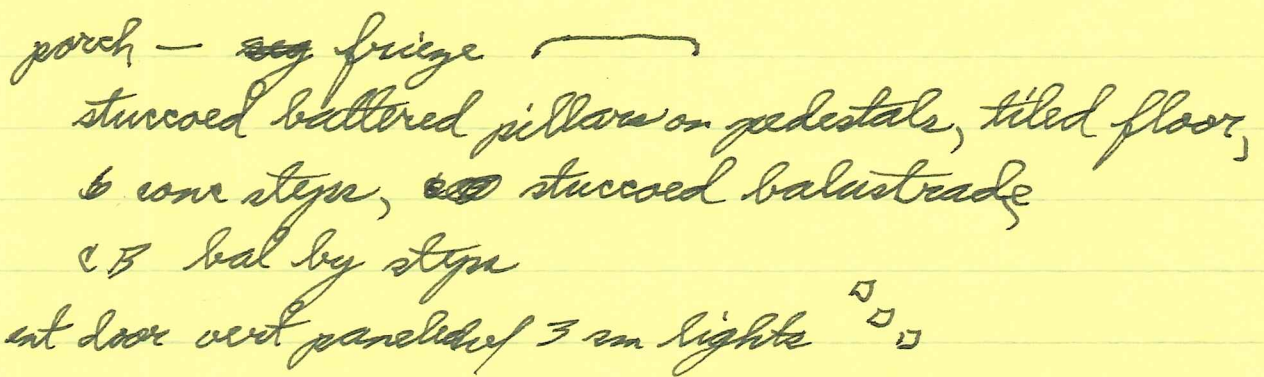 porch — frieze
stuccoed battered pillars on pedestals, tiled floor,
6 conc steps, stuccoed balustrade,
CB bal by steps
ent door vert paneled w/ 3 sm lights